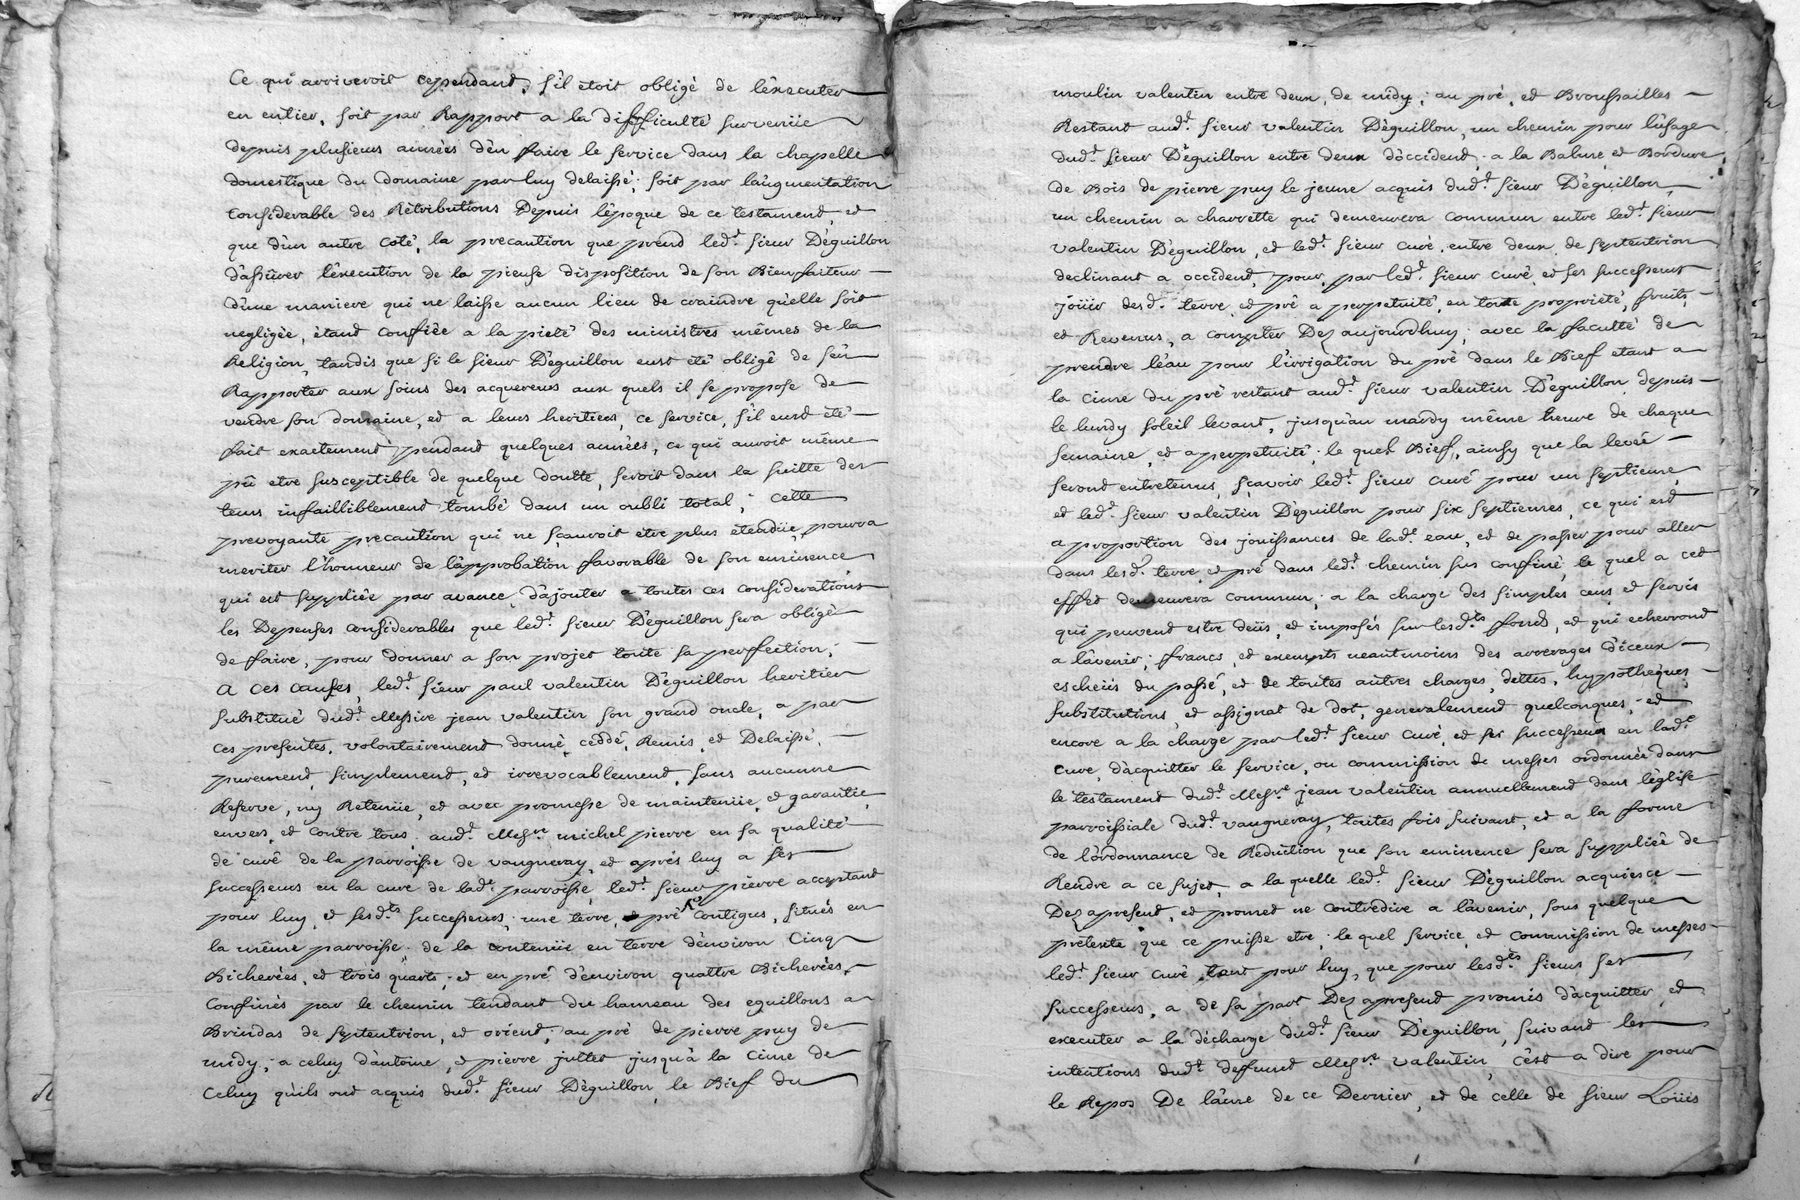 Ce qui arriveroit cependant, s'il etoit obligé de l'éxecuter
en entier, soit par Rapport a la difficulté survenüe
depuis plusieurs années d'en faire le service dans la chapelle
domestique du domaine par luy delaissé; soit par l'augmentation
considerable des Rétributions Depuis l'époque de ce testament, et
que d'un autre coté, la precaution que prend led.t sieur Déguillon
d'assûrer l'éxecution de la pieuse disposition de son Bienfaiteur
d'une maniere qui ne laisse aucun lieu de craindre qu'elle soit
negligée, étant confiée a la pieté des ministres mêmes de la
Religion, tandis que si le sieur Déguillon eust été obligé de s'en
Rapporter aux soins des acquereurs aux quels il se propose de
vendre son domaine, et a leurs heritiers, ce service, s'il eust été
fait exactement pendant quelques années, ce qui auroit même
pû etre susceptible de quelque doutte, seroit dans la suitte des
tems infailliblement tombé dans un oubli total; cette
prevoyante precaution qui ne sçauroit etre plus étendüe, pourra
meriter l'honneur de l'approbation favorable de son eminence
qui est suppliée par avance, d'ajouter a toutes ces considerations
les Depenses considerables que led.t sieur Déguillon sera obligé
de faire, pour donner a son projet toute sa perfection;
a ces causes, led.t sieur paul valentin Déguillon heritier
substitué dud.t Messire jean valentin son grand oncle, a par
ces presentes, volontairement donné, ceddé, Remis, et Delaissé,
purement, simplement, et irrevocablement, sans aucunne
Reserve, ny Retenüe, et avec promesse de maintenüe, et garantie,
envers, et contre tous, aud.t Mess.re michel pierre en sa qualité
de curé de la parroisse de vaugneray, et aprés luy a ses
successeurs en la cure de lad.te parroisse, led.t sieur pierre acceptant
pour luy, et sesd.ts successeurs, une terre, et pré contigus, situés en
la même parroisse, de la contenüe en terre d'environ Cinq
Bicherées, et trois quarts, et en pré d'environ quattre Bicherées,
confinés par le chemin tendant du hameau des eguillons a
Brindas de septentrion, et orient; au pré de pierre puy de
midy; a celuy d'antoine, et pierre juttet jusqu'a la Cime de
Celuy qu'ils ont acquis dud.t sieur Déguillon, le Bief du
moulin valentin entre deux, de midy; au pré, et Broussailles
Restant aud.t sieur valentin Déguillon, un chemin pour l'usage
dud.t sieur Déguillon entre deux d'occident; a la Balme, et Bordure
de Bois de pierre puy le jeune acquis dud.t sieur Déguillon,
un chemin a charrette qui demeurera commun entre led.t sieur
valentin Déguillon, et led.t sieur curé, entre deux de septentrion
declinant a occident, pour, par led.t sieur curé, et ses successeurs
joüir desd. terre, et pré a perpetuité, en toute proprieté, fruits,
et Revenus, a compter Dez aujourdhuy; avec la faculté de
prendre l'éau pour l'irrigation du pré dans le Bief etant a
la cime du pré restant aud.t sieur valentin Déguillon, depuis
le lundy soleil levant, jusqu'au mardy même heure de chaque
semaine, et a perpetuité, le quel Bief, ainsy que la levée
seront entretenus, sçavoir led.t sieur curé pour un septieme,
et led.t sieur valentin Déguillon pour six septiemes, ce qui est
a proportion des jouissances de lad.te eau, et de passer pour aller
dans lesd. terre, et pré dans led.t chemin sus confiné, le quel a cet
effet demeurera commun; a la charge des simples cens, et servis
qui peuvent estre deüs, et imposés sur lesd.ts fonds, et qui echerront
a l'avenir; francs, et exempts neantmoins des arrerages d'iceux
escheüs du passé, et de toutes autres charges, dettes, hypotheques,
substitutions, et assignat de dot, generalement quelconques; et
encore a la charge par led.t sieur Curé, et ses successeurs en lad.te
cure, d'acquitter le service, ou commission de messes ordonnée dans
le testament dud.t Mess.re jean valentin annuellement dans l'église
parroissiale dud.t vaugneray, toutes fois suivant, et a la forme
de l'ordonnance de Réduction que son eminence sera suppliée de
Rendre a ce sujet, a la quelle led.t sieur Déguillon acquiesce
Dez apresent, et promet ne contredire a l'avenir, sous quelque
prétexte que ce puisse etre; le quel service, et commission de messes
led.t sieur curé, tant pour luy, que pour lesd.ts sieurs ses
successeurs, a de sa part Dez apresent promis d'acquitter, et
executer a la décharge dud.t sieur Déguillon, suivant les
intentions dud.t defunt Mess.re valentin, c'est a dire pour
le Repos De l'âme de ce Dernier, et de celle de sieur Loüis